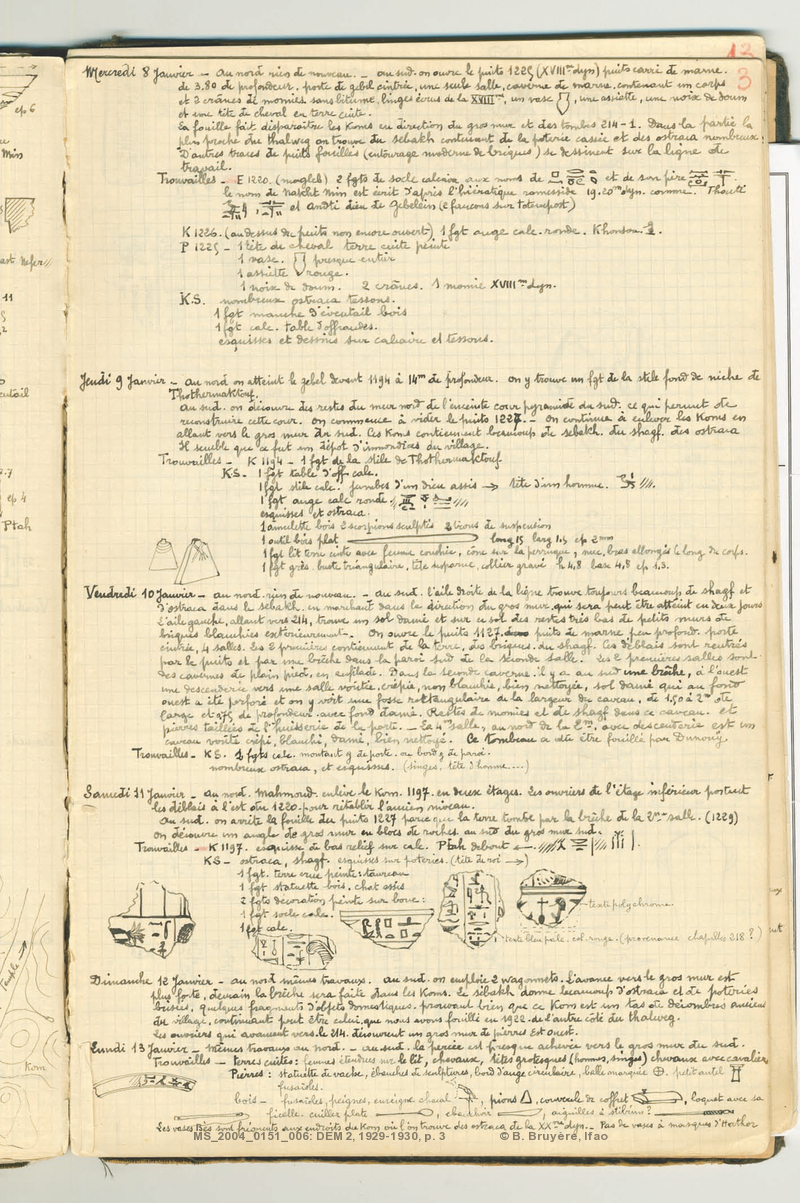 13
3
Mercredi 8 Janvier – Au nord rien de nouveau. – au sud. on ouvre le puits 1225 (XVIIIme dyn) puits carré de marne.
de 3.80 de profondeur, porte de gebel cintrée, une seule salle, caverne de marne, contenant un corps
et 2 crânes de momies sans bitume, linges écrus de la XVIIIme, un vase, une assiette, une noix de doum
et une tête de cheval en terre cuite.
La fouille fait disparaître les Koms en direction du gros mur et des tombes 214-1. Dans la partie la
plus proche du thalweg on trouve du sebakh contenant de la poterie cassée et des ostraca nombreux.
D'autres traces de puits fouillés (entourage moderne de briques) se dessinent sur la ligne de
travail.
Trouvailles – E 1220. (magleb) 2 fgts de socle calcaire aux noms de et de son père
le nom de Nakht Min est écrit d'après l'hiératique ramesside 19.20me dyn. comme Thouti
et Andti dieu de Gebelein (2 faucons sur totem port)
K 1226. (au dessus de puits non encore ouvert) 1 fgt auge calc. ronde. Khonsou
P 1225 – 1 tête de cheval terre cuite peinte
1 vase. presque entier
1 assiette rouge.
1 noix de doum. 2 crânes. 1 momie XVIIIme dyn.
K.S. nombreux ostraca tessons.
1 fgt manche d'éventail bois
1 fgt calc. table d'offrandes.
esquisses et dessins sur calcaire et tessons.
Jeudi 9 Janvier – Au nord on atteint le gebel devant 1194 à 14m de profondeur. on y trouve un fgt de la stèle fond de niche de
Thothermaktouf.
Au sud. on découvre des restes du mur nord de l'enceinte cour pyramide du sud. ce qui permet de
reconstruire cette cour. On commence à vider le puits 1227. – On continue à enlever les Koms en
allant vers le gros mur du sud. Ces Koms contiennent beaucoup de sebakh. du shagf. des ostraca
Il semble que ce fut un dépôt d'immondices du village.
Trouvailles – K 1194 – 1 fgt de la stèle de Thothermaktouf
KS. 1 fgt table d'off. calc.
1 fgt stèle calc. jambes d'un dieu assis → tête d'un homme.
1 fgt auge calc ronde
esquisses et ostraca.
1 amulette bois 2 scorpions sculptés 2 trous de suspension
1 outil bois plat long 15 larg 1.5 ep 2mm
1 fgt lit terre cuite avec femme couchée, cône sur la perruque, nue, bras allongés le long du corps.
1 fgt grès. buste triangulaire, tête suparue, collier gravé h 4,8 base 4,8 ep 1,3.
Vendredi 10 Janvier – au nord. rien de nouveau. – au sud. l'aile droite de la ligne trouve toujours beaucoup de shagf et
d'ostraca dans le sebakh. en marchant dans la direction du gros mur, qui sera peut être atteint en deux jours
L'aile gauche, allant vers 214, trouve un sol damé et sur ce sol des restes très bas de petits murs de
briques blanchies extérieurement. On ouvre le puits 1127. puits de marne peu profond. porte
cintrée, 4 salles. les 2 premières contiennent de la terre, des briques, du shagf. Ces déblais sont rentrés
par le puits et par une brèche dans la paroi sud de la seconde salle. Les 2 premières salles sont
des cavernes de plain pied, en enfilade. Dans la seconde caverne. il y a au sud une brèche, à l'ouest
une descenderie vers une salle voûtée, crépie, non blanchie, bien nettoyée, sol damé qui au fond
ouest a été perforé et on y voit une fosse rectangulaire de la largeur du caveau, de 1.50 à 2m de
large et 0,75 de profondeur. avec fond damé. Restes de momies et de shagf dans ce caveau. et
pierres taillées de l'huisserie de la porte. – La salle, au nord de la 2me, avec descenderie est un
caveau voûté crépi, blanchi, damé, bien nettoyé. Ce tombeau a dû être fouillé par
Trouvailles – KS. 2 fgts calc. montant g de porte. au bord g de paroi.
nombreux ostraca, et esquisses. (singes. tête d'homme....)
Samedi 11 Janvier – au nord. Mahmoud. enlève le Kom. 1197. en deux étages. Les ouvriers de l'étage inférieur portent
les déblais à l'est de 1220. pour rétablir l'ancien niveau.
Au sud. on arrête la fouille du puits 1227 parce que la terre tombe par la brèche de la 2me salle. (1229)
On découvre un angle de gros mur en blocs de roches. au sud du gros mur sud.
Trouvailles – K 1197. esquisse de bas relief sur calc. Ptah debout ←
KS – ostraca, shagf. esquisses sur poteries. (tête de roi →)
1 fgt. terre crue peinte: taureau
1 fgt statuette bois. chat assis
2 fgts decoration peinte sur boue:
1 fgt socle calc.
1 fgt calc.
texte polychrome.
texte bleu pale. col. rouge. (provenance chapelles 218 ?)
Dimanche 12 Janvier – au nord mêmes travaux. au sud. on emploie 2 wagonnets. L'avance vers le gros mur est
plus forte, demain la brèche sera faite dans les Koms. Le sebakh donne beaucoup d'ostraca et de poteries
brisées, quelques fragments d'objets domestiques. prouvant bien que ce Kom est un tas de décombres anciens
du village, continuant peut être celui, que nous avons fouillé en 1922. de l'autre côté du thalweg.
Les ouvriers qui avancent vers. le 214. découvrent un gros mur de pierres Est ouest.
Lundi 13 Janvier – Mêmes travaux au nord. – au sud. la percée est presque achevée vers le gros mur du sud.
Trouvailles – Terres cuites: femmes étendues sur le lit, chevaux, têtes grotesques (hommes, singes) chevaux avec cavalier
Pierres: statuette de vache, ébauches de sculptures, bord d'auge circulaire, balle marquée ⊕. petit autel
fusaïoles.
bois – fusaïoles, peignes, enseigne cheval, pions, couvercle de coffret, loquet avec sa
ficelle. cuiller plate, ebauchoir, aiguilles à stibium?
Les vases Bès sont fréquents aux endroits du Kom où l'on trouve des ostraca de la XXme dyn. – Pas de vases à masques d'Hathor
ep 6
Min
11
ep 4
Ptah
Kom
MS_2004_0151_006: DEM 2, 1929-1930, p. 3 © B. Bruyère, Ifao